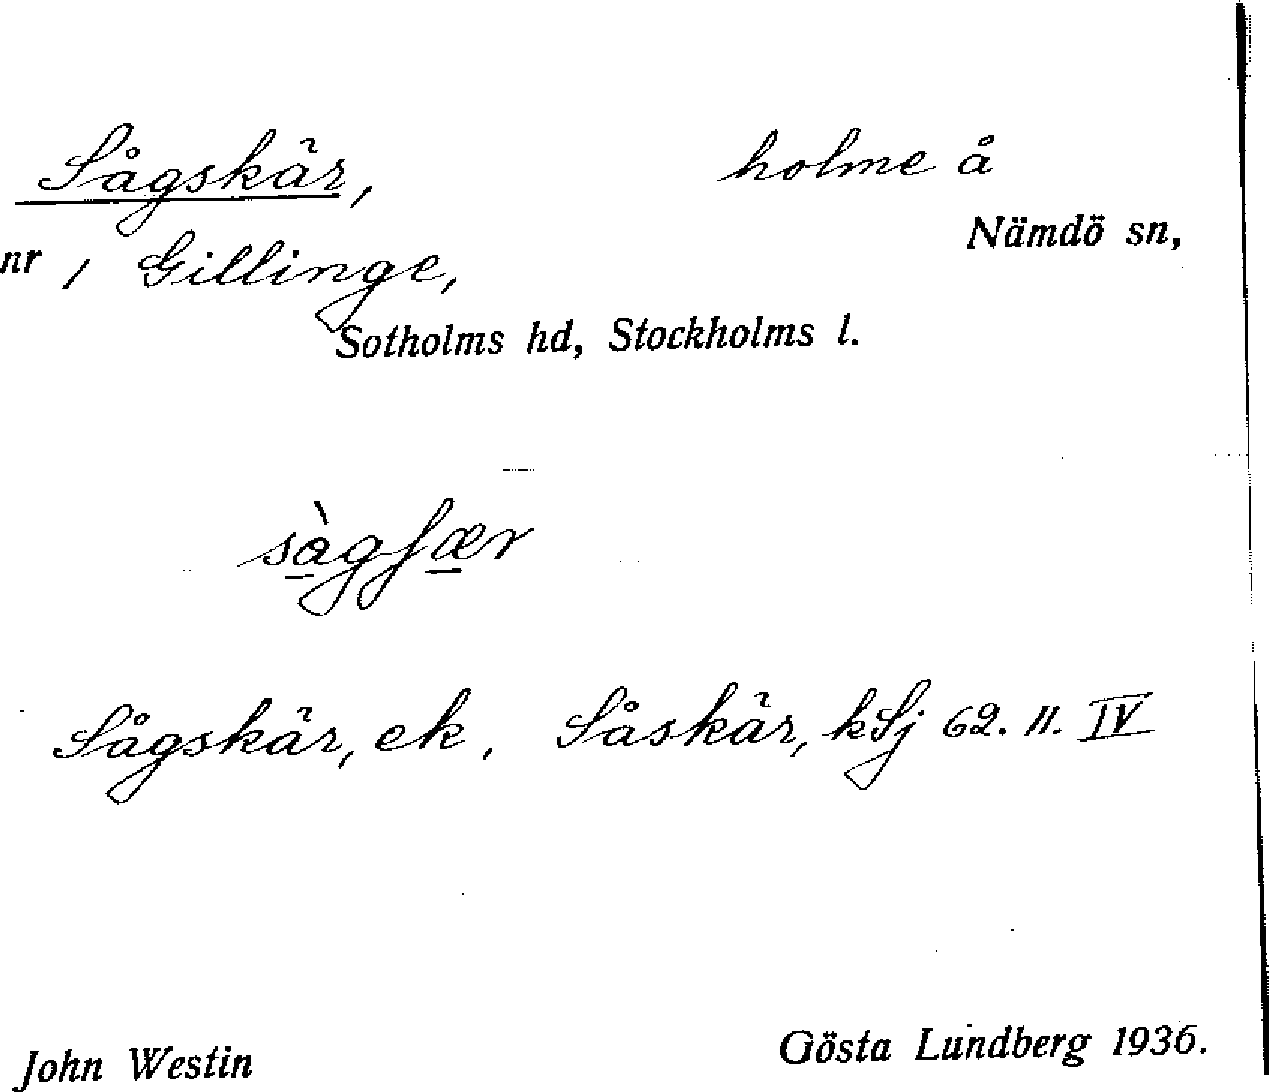 Sågskär, holme å
Nämdö sn,
nr 1 Gillinge,
Sotholms hd, Stockholms l.
sàgʃær
Sågskär, ek. Såskär, kSj 62. 11. IV
John Westin Gösta Lundberg 1936.